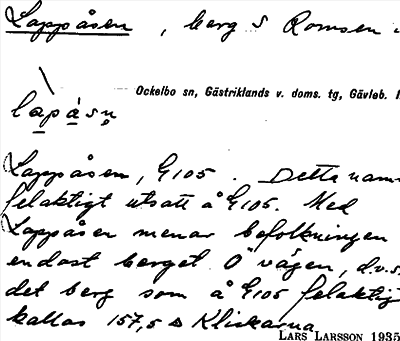 Lappåsen, berg S Romsen
Ockelbo sn, Gästriklands v. doms. tg, Gävleb. l
lapåsn
Lappåsen, G105. Detta namn
felaktigt utsatt å G105. Med
Lappåsen menar befolkningen
endast berget Ö vägen, d.v.s.
det berg som å G105 felaktigt
kallas 157,5 Δ Klickarna
LARS LARSSON 1935